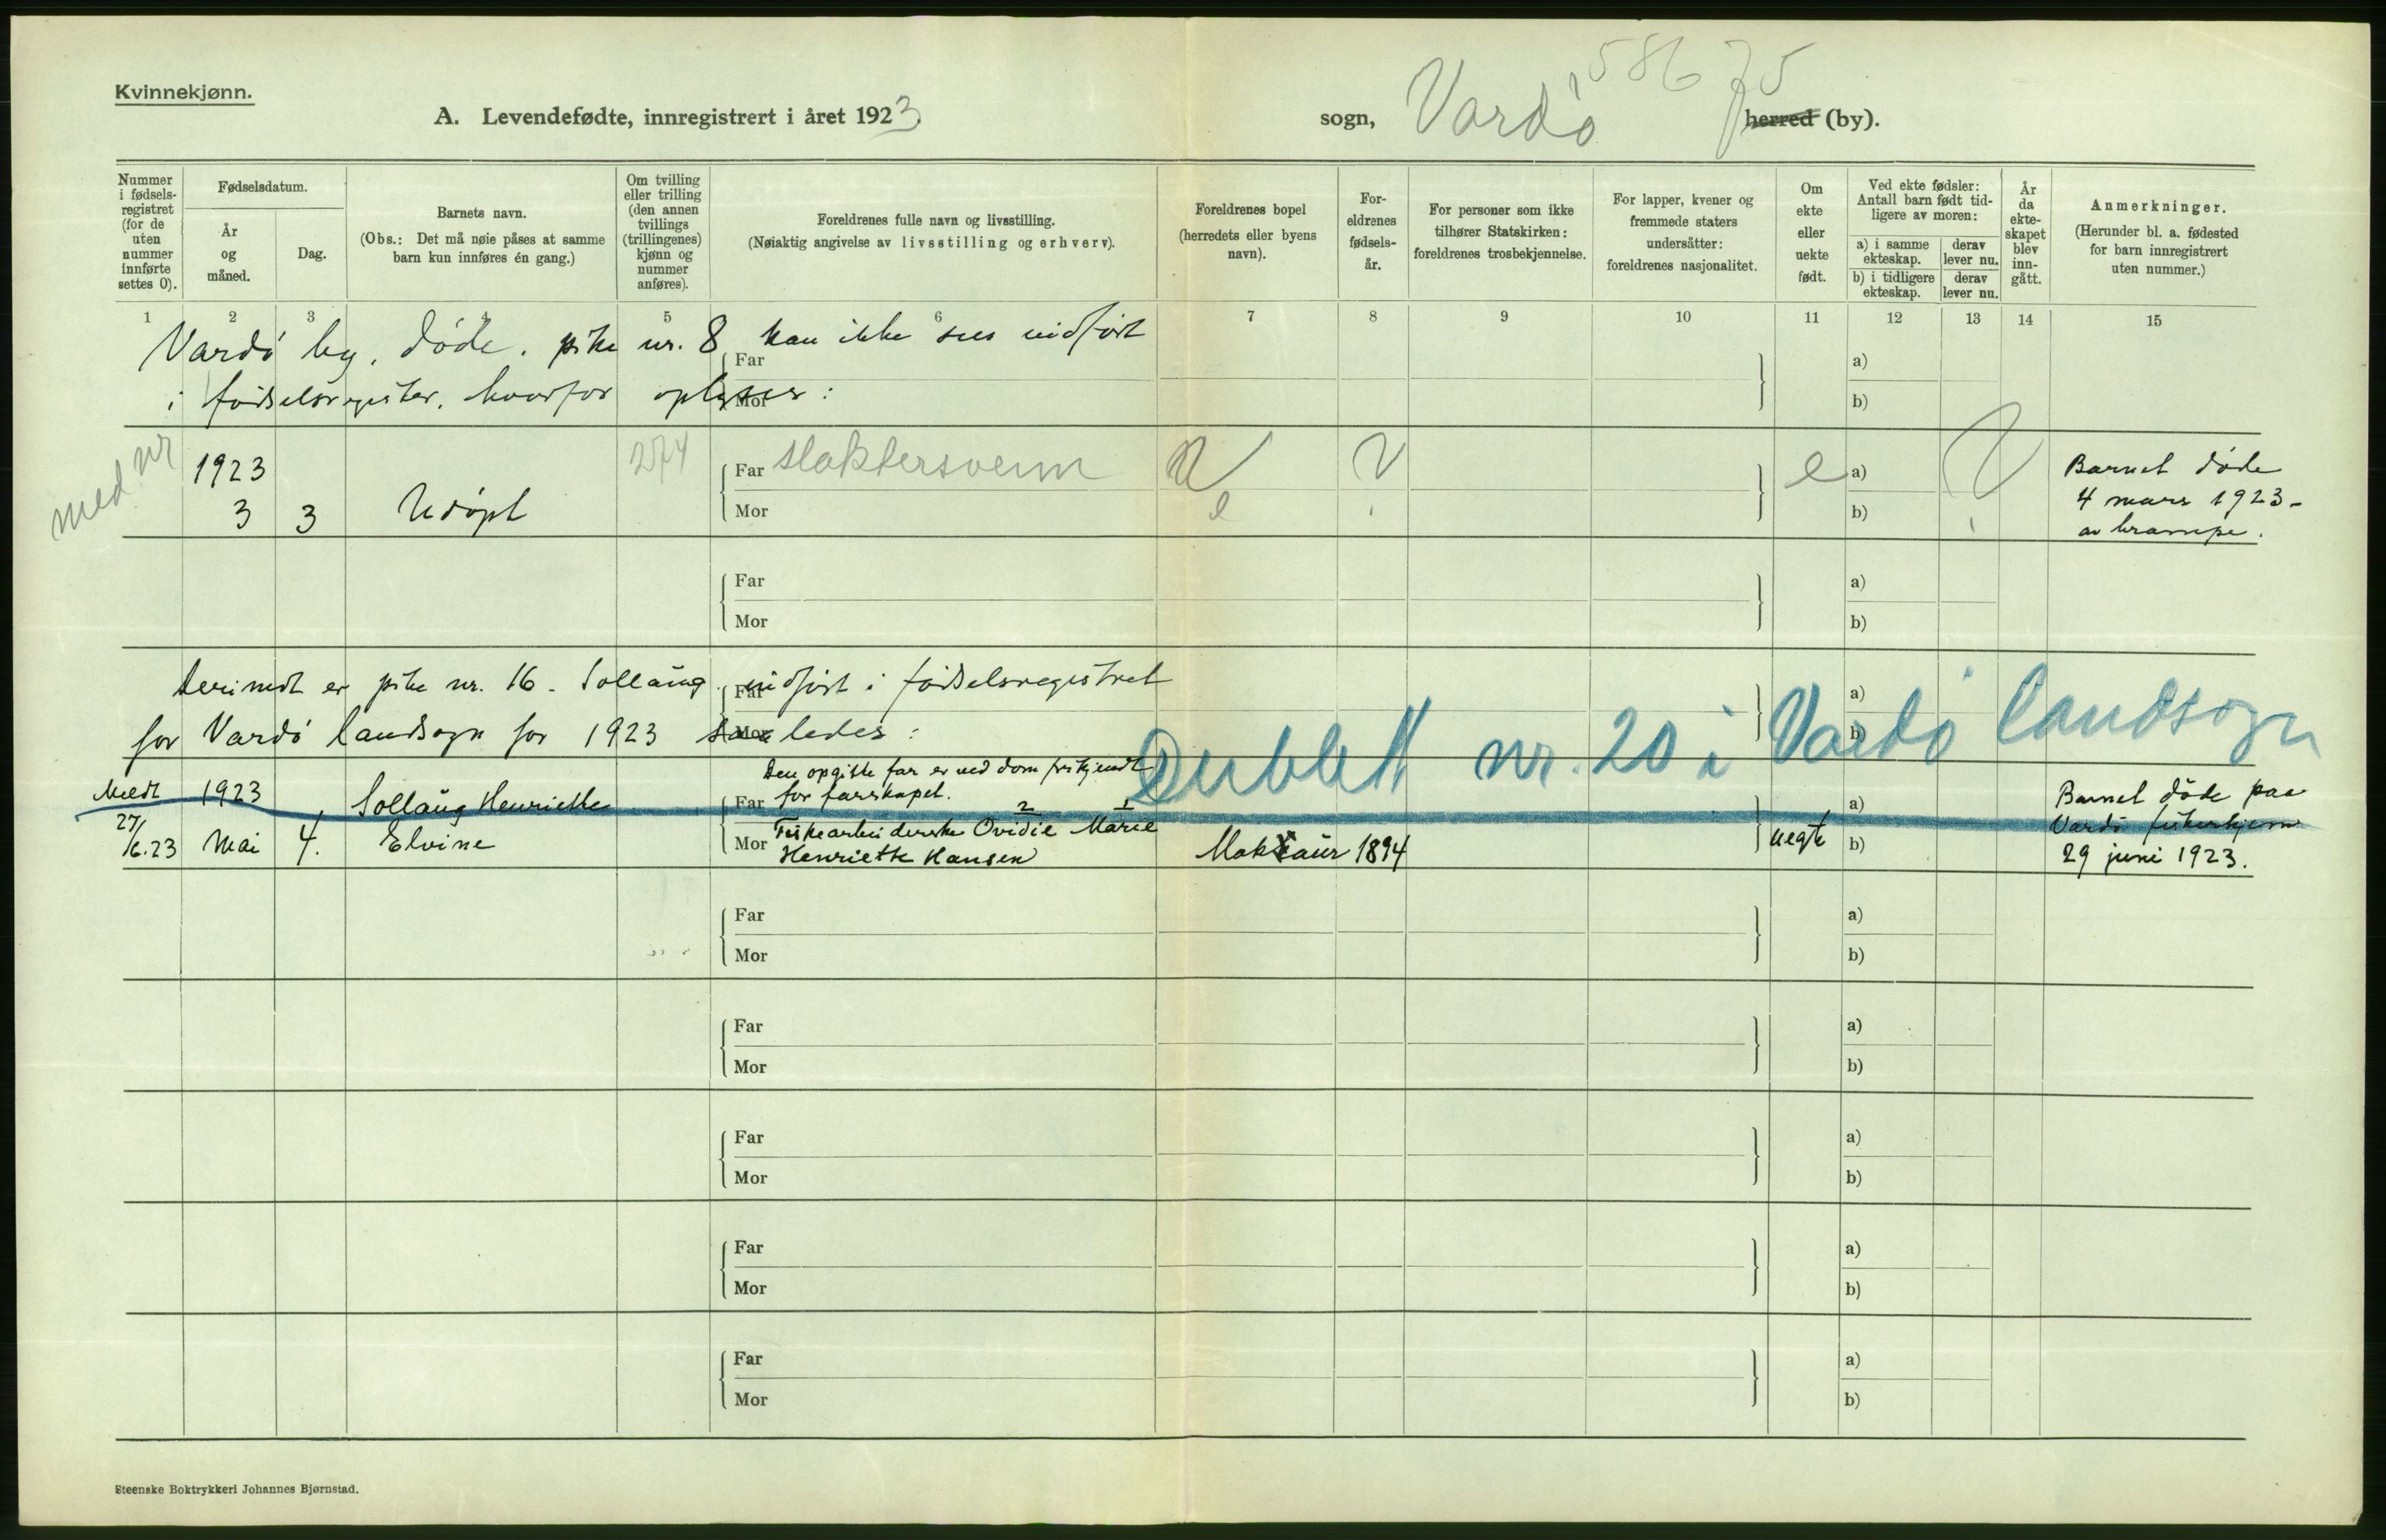 58675
Kvinnekjønn.
A. Levendefødte, innregistrert i året 1923.
sogn, Vardö herred (by).
Nummer i fødsels-registret (for de uten nummer innførte settes 0).
Fødselsdatum.
År og måned.
Dag.
Barnets navn.
(Obs.: Det må nøie påses at samme barn kun innføres én gang.)
Om tvilling eller trilling (den annen tvillings (trillingenes) kjønn og nummer anføres).
Foreldrenes fulle navn og livsstilling.
(Nøiaktig angivelse av livsstilling og erhverv).
Foreldrenes bopel (herredets eller byens navn).
For-eldrenes fødsels-år.
For personer som ikke tilhører Statskirken: foreldrenes trosbekjennelse.
For lapper, kvener og fremmede staters undersåtter: foreldrenes nasjonalitet.
Om ekte eller uekte født.
Ved ekte fødsler: Antall barn født tid-ligere av moren:
a) i samme ekteskap.
derav lever nu.
b) i tidligere ekteskap.
derav lever nu.
År da ekte-skapet blev inn-gått.
Anmerkninger.
(Herunder bl. a. fødested for barn innregistrert uten nummer.)
1 2 3 5 6 7 8 9 10 11 12 13 14 15
Vardö by, döde, pike nr. 8 kan ikke sees indfört
Far a)
i födselsregister, hvorfor oplyses:
Mor b)
med nr
1923 274 Far slaktersvenn e a) Barnet döde
3 3 Udöpt Mor e b) 4 mars 1923 -
av krampe.
Far a)
Mor b)
Derimot er pike nr. 16 - Sollaug indfört i födselsregistret
Far a)
for Vardö landsogn for 1923 saaledes:
Mor b)
Dublett nr. 20 i Vardö landsogn
Den opgitte far er ved dom frikjendt
Meldt 1923 Sollaug Henriette Far for farskapet. a) Barnet döde paa
2 1
27/6.23 Mai 4. Elvine Mor Fiskearbeiderske Ovidie Marie uegte b) Vardö
Henriette Hansen Makkaur 1894 29 juni 1923.
Far a)
Mor b)
Far a)
Mor b)
Far a)
Mor b)
Far a)
Mor b)
Far a)
Mor b)
Steenske Boktrykkeri Johannes Bjørnstad.